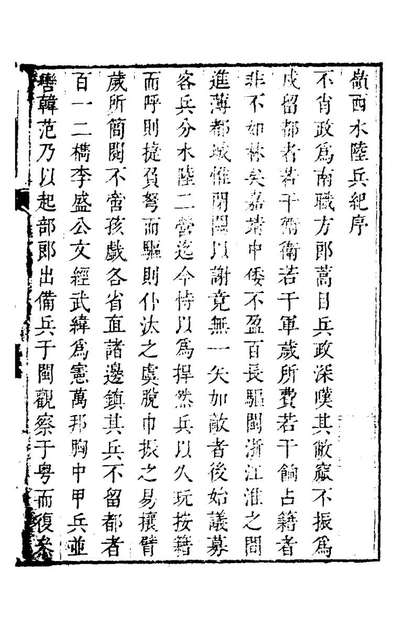 嶺西水陸兵紀序
不肖政爲南職方郎蒿目兵政深嘆其敝羸不振爲
戍留都者若干衛衛若干軍歲所費若干餉占籍者
非不如林矣嘉靖中倭不盈百長驅閩浙江淮之間
進薄都城惟閉闉以謝竟無一矢如敵者後始議募
客兵分水陸二營迄今恃以爲捍然兵以久玩按籍
而呼則捷負弩而驅則仆汰之虞脫巾振之易攘臂
歲所簡閱不啻孩戲各省直諸邊鎮其兵不留都者
百一二檇李盛公文經武緯爲憲萬邦胸中甲兵並
轡韓范乃以起部郎出備兵于閩觀察于粤而復叅